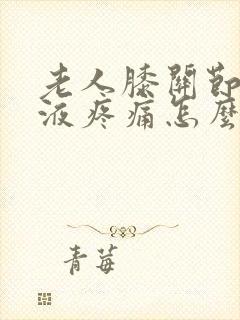 老人膝關節
液疼痛怎麼
青莓